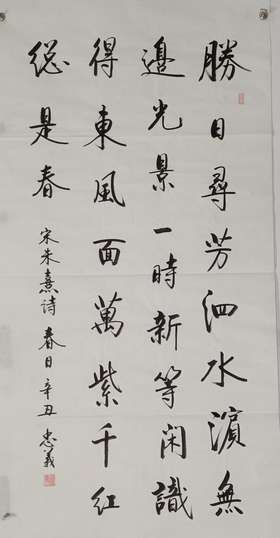 勝日尋芳泗水濱無
邊光景一時新等閑識
得東風面萬紫千红
總是春
宋朱熹詩春日辛丑忠義